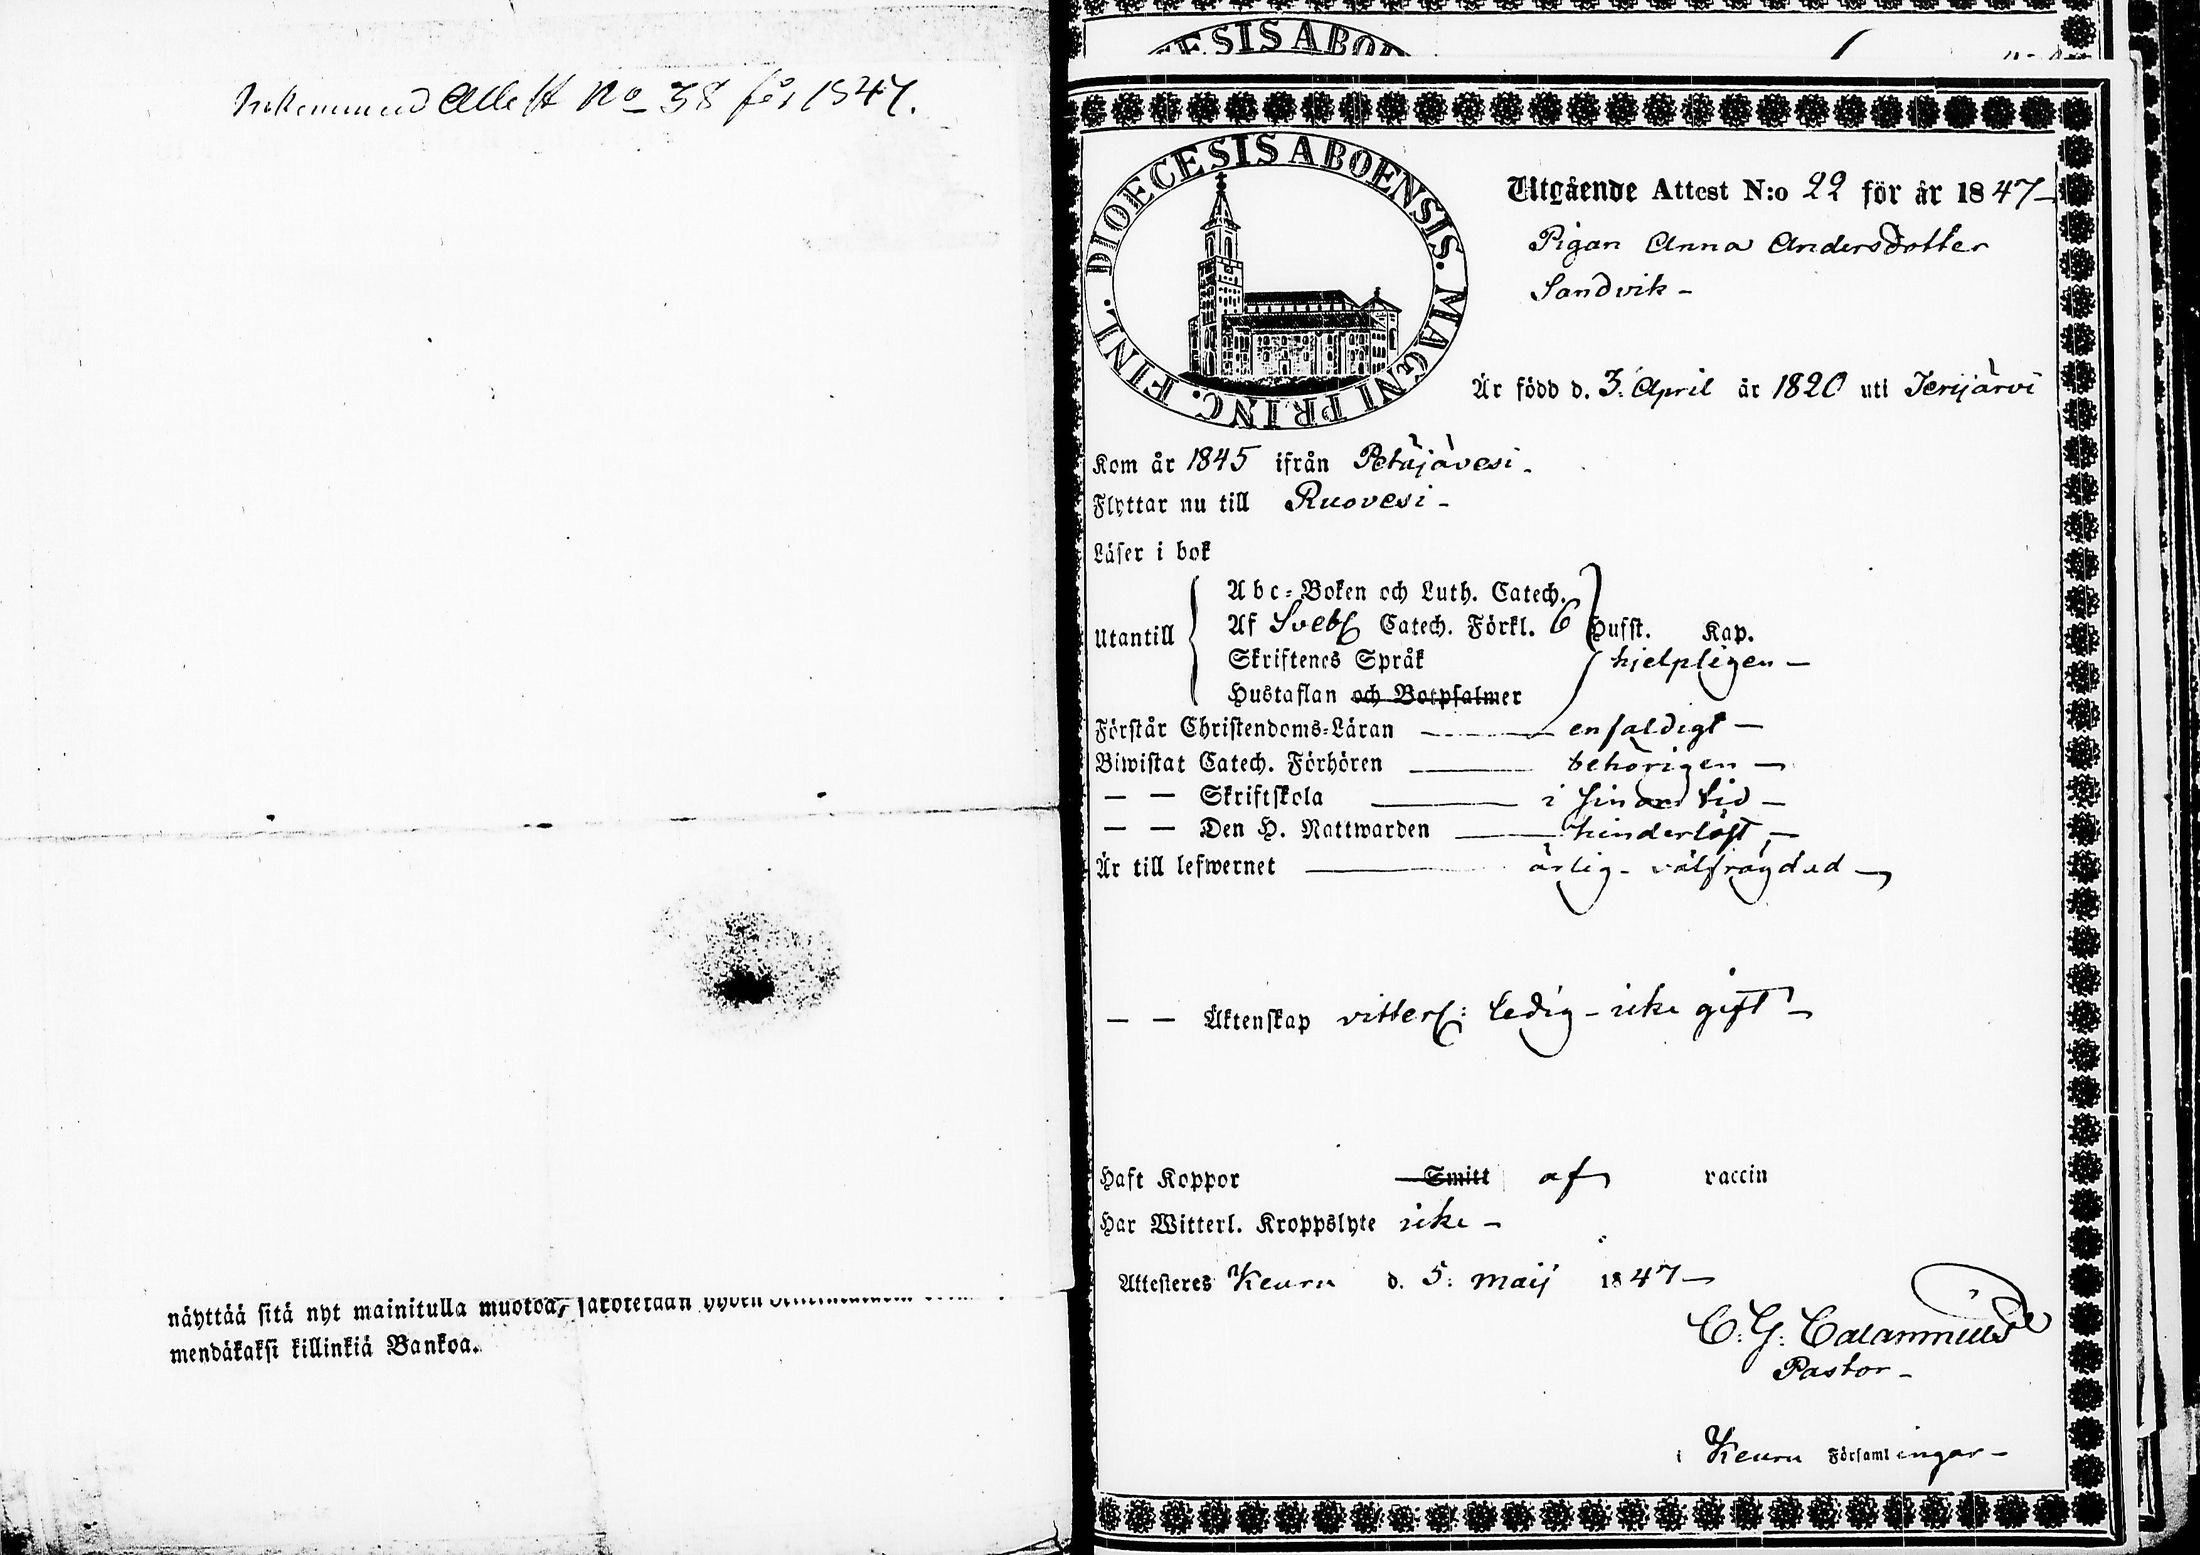 Inkommend Attest No 38 för 1847.
näyttää sitä nyt mainitulla muotoa,
mendäkaksi killinkiä Bankoa.
DIOECESIS ABOENSIS. MAGNI PRINC. FINL.
Utgående Attest N:o 22 för år 1847
Pigan Anna Andersdotter
Sandvik
Är född d. 3. April år 1820 uti
Kom år 1845 ifrån Petäjävesi
Flyttar nu till Ruovesi
Läser i bok
Utantill
Abc-Boken och Luth. Catech.
Af Catech. Förkl. 6 Hufst. Kap.
Skriftenes Språk hjelpligen
Hustaflan och Botpsalmer
Förstår Christendoms-Läran enfaldigt
Biwistat Catech. Förhören behörigen
— — Skriftskola i sinom tid
— — Den H. Nattwarden hinderlöst
Är till lefwernet ärlig - välfrägdad
— — Äktenskap vitterl: ledig - icke gift
Haft Koppor Smitt af vaccin
Har Witterl. Kroppslyte icke
Attesteres Keuru d. 5. Maij 1847
C. G. Calamnius
Pastor
i Keuru Församlingar